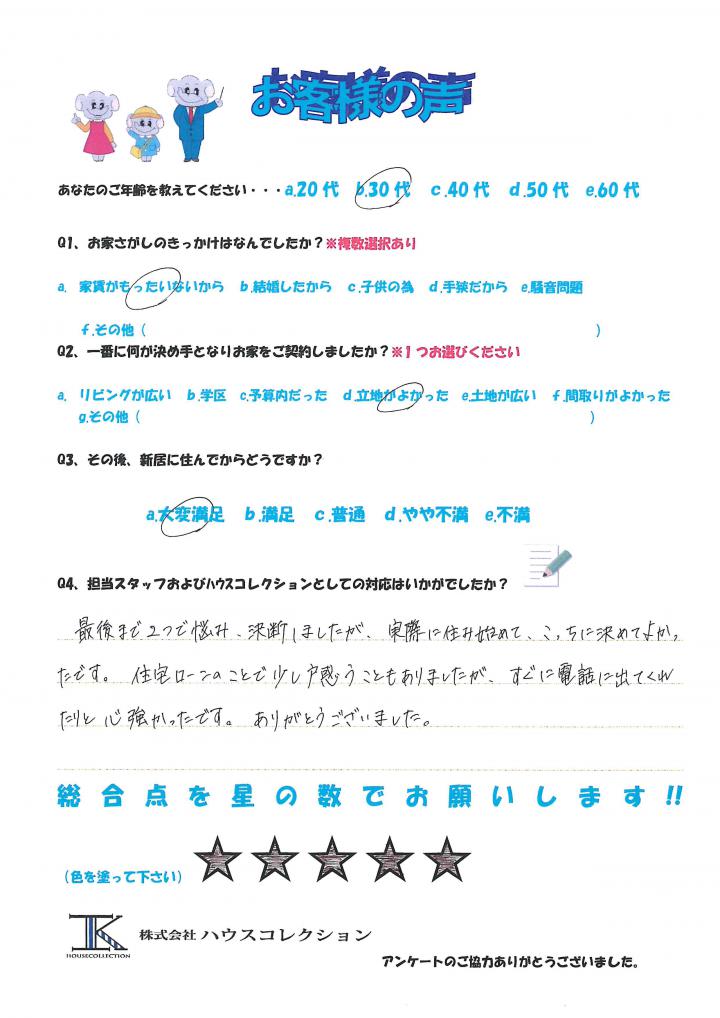 お客様の声
あなたのご年齢を教えてください・・・a.20代 b.30代 c.40代 d.50代 e.60代
Q1、お家さがしのきっかけはなんでしたか？※複数選択あり
a. 家賃がもったいないから b.結婚したから c.子供の為 d.手狭だから e.騒音問題
f.その他（ ）
Q2、一番に何が決め手となりお家をご契約しましたか？※1つお選びください
a. リビングが広い b.学区 c.予算内だった d.立地がよかった e.土地が広い f.間取りがよかった
g.その他（ ）
Q3、その後、新居に住んでからどうですか？
a.大変満足 b.満足 c.普通 d.やや不満 e.不満
Q4、担当スタッフおよびﾊｳｽコレクションとしての対応はいかがでしたか？
最後まで2つで悩み、決断しましたが、実際に住み始めて、こっちに決めてよかっ
たです。住宅ローンのことで少し戸惑うこともありましたが、すぐに電話に出てくれ
たりと心強かったです。ありがとうございました。
総合点を星の数でお願いします!!
（色を塗って下さい）
HOUSECOLLECTION
株式会社 ハウスコレクション
アンケートのご協力ありがとうございました。